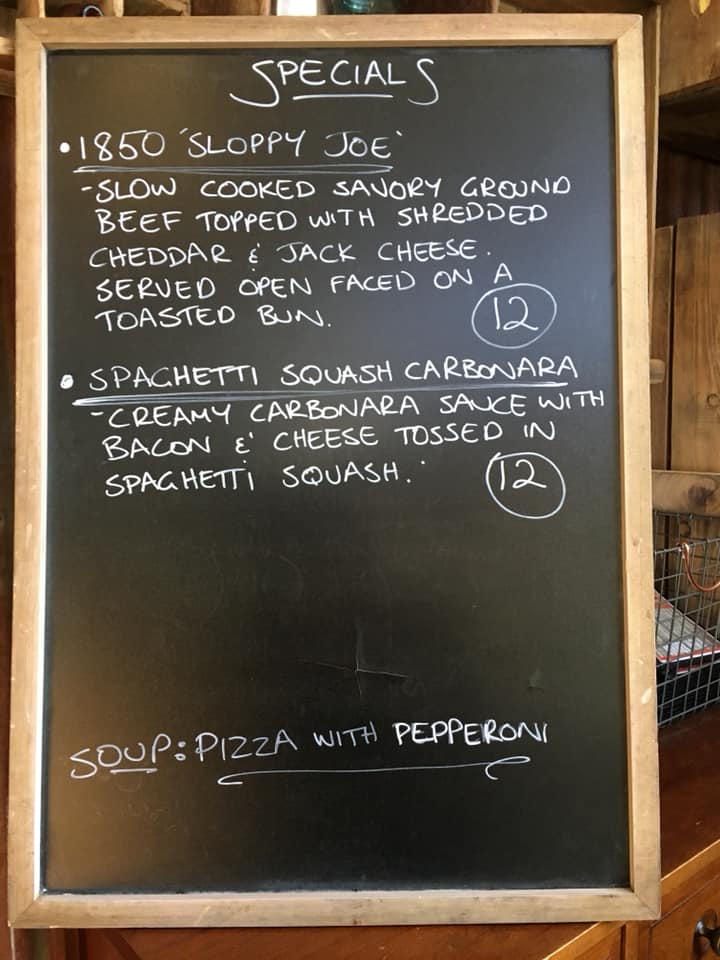 SPECIALS
• 1850 'SLOPPY JOE'
- SLOW COOKED SAVORY GROUND
BEEF TOPPED WITH SHREDDED
CHEDDAR & JACK CHEESE.
SERVED OPEN FACED ON A
TOASTED BUN. 12
• SPAGHETTI SQUASH CARBONARA
- CREAMY CARBONARA SAUCE WITH
BACON & CHEESE TOSSED IN
SPAGHETTI SQUASH. 12
SOUP: PIZZA WITH PEPPERONI